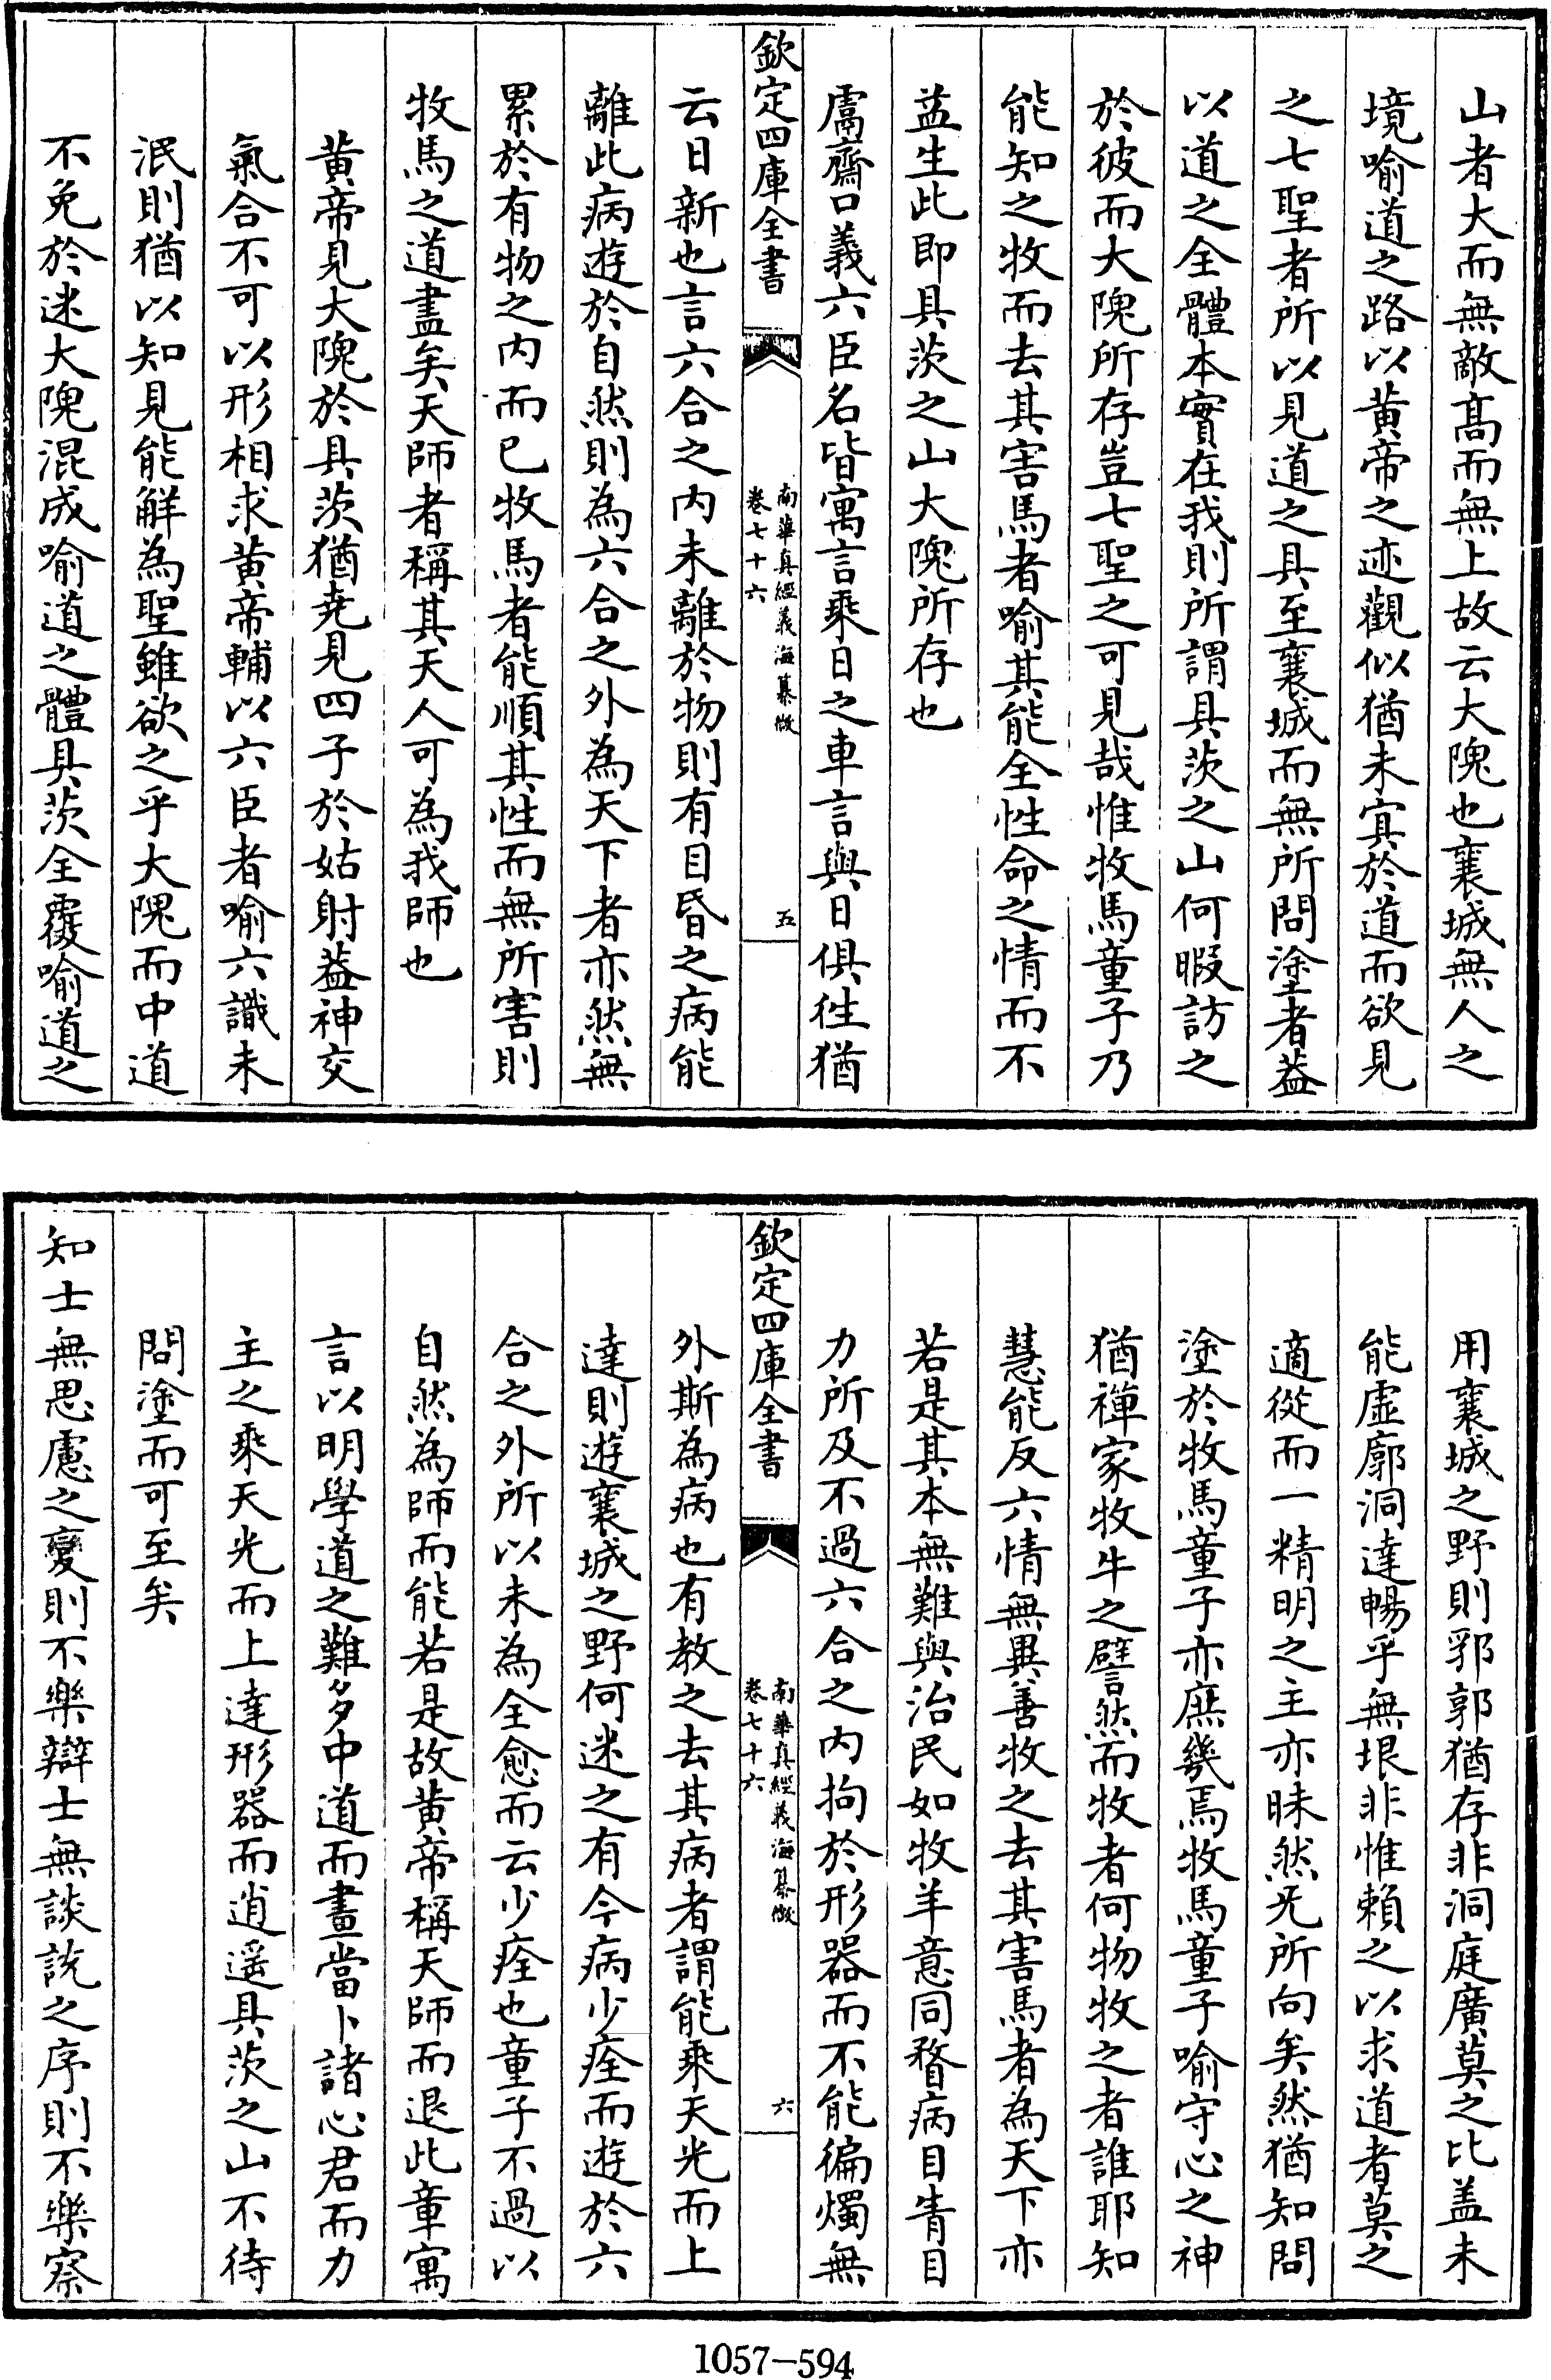 山者大而無敵髙而無上故云大隗也襄城無人之
境喻道之路以黄帝之迹觀似猶未㝠於道而欲見
之七聖者所以見道之具至襄城而無所問塗者葢
以道之全體本實在我則所謂具茨之山何暇訪之
於彼而大隗所存豈七聖之可見哉惟牧馬童子乃
能知之牧而去其害馬者喻其能全性命之情而不
益生此即具茨之山大隗所存也
鬳齋口義六臣名皆寓言乘日之車言與日俱徃猶
欽定四庫全書
南華真經義海纂微
卷七十六
五
云日新也言六合之内未離於物則有目昏之病能
離此病遊於自然則為六合之外為天下者亦然無
累於有物之内而已牧馬者能順其性而無所害則
牧馬之道盡矣天師者稱其天人可為我師也
黄帝見大隗於具茨猶堯見四子於姑射葢神交
氣合不可以形相求黄帝輔以六臣者喻六識未
泯則猶以知見能解為聖雖欲之乎大隗而中道
不免於迷大隗混成喻道之體具茨全覆喻道之
用襄城之野則郛郭猶存非洞庭廣莫之比盖未
能虚廓洞達暢乎無垠非惟賴之以求道者莫之
適從而一精明之主亦昧然无所向矣然猶知問
塗於牧馬童子亦庶幾焉牧馬童子喻守心之神
猶禪家牧牛之譬然而牧者何物牧之者誰耶知
慧能反六情無異善牧之去其害馬者為天下亦
若是其本無難與治民如牧羊意同瞀病目眚目
力所及不過六合之内拘於形器而不能徧燭無
欽定四庫全書
南華真經義海纂微
卷七十六
六
外斯為病也有教之去其病者謂能乘天光而上
達則遊襄城之野何迷之有今病少痊而遊於六
合之外所以未為全愈而云少痊也童子不過以
自然為師而能若是故黄帝稱天師而退此章寓
言以明學道之難多中道而畫當卜諸心君而力
主之乘天光而上達形器而逍遥具茨之山不待
問塗而可至矣
知士無思慮之變則不樂辯士無談説之序則不樂察
1057-594